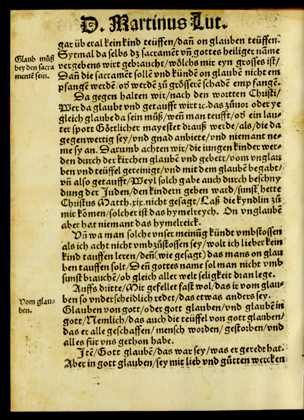 D. Martinus Lut.
gar überal kein kind teüffen/dañ on glauben teüffen.
Glaub müß
Syttmal da selbs dz sacramēt vñ gottes heiliger näme
bey den sacra
vergebens wirt gebraucht/wölchs mir eyn grosses ist/
mentē sein.
Dañ die sacramēt sollē vnd kündē on glaubē nicht em
pfangē werdē/oð werdē zů grösserē schadē empfangē.
Da gegen halten wir/nach den wortten Christi/
Wer da glaubt vnd getaufft wirt ꝛc. das zůuor oder ye
gleich glaube da sein müß/weñ man teufft/oð ein lau
ter spott Götlicher mayestet drauß werde/als/die da
gegenwertig sey/vnd gnad anbiette/vnd niemant ne
me sy an. Darumb achten wir/die iungen kinder wer
den durch der kirchen glaubē vnd gebett/vom vnglau
ben vnd teüffel gereiniget/vnd mit dem glaubē begabet/
vñ also getaufft/Weyl solch gabe auch durch beschny
dung der Juden/den kindern geben ward/sunst hette
Christus Matth.xix.nicht gesagt/Laß die kyndlin zů
mir kōmen/solcher ist das hymelreych. On vnglaubē
aber hat niemant das hymelrick.
Vñ wa man solche vnser meinūg kündt vmbstossen
als ich acht nicht vmbzůstossen sey/wolt ich lieber kein
kind tauffen leren/deñ/(wie gesagt) das mans on glau
ben tauffen solt. Deñ gottes name sol man nicht vmb
sunst brauchē/ob gleich aller welt seligkeit dran lege.
Auffs dritte/Mir gefellet fast wol/das ir vom glau-
Vom glau-
ben so vnderscheidlich redet/das etwas anders sey.
ben.
Glauben von gott/oder gott glauben/vnd glaubē in
gott/Nemlich/das auch die teüffel von gott glauben/
das er alle geschaffen/mensch worden/gestorben/vnd
alles für vns gethon habe.
Jtē/Gott glaubē/das war sey/was er geredt hat.
Aber in gott glauben/sey mit lieb vnd gůtten wercken